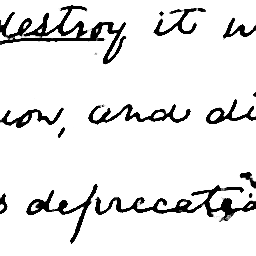 destroy it w
ion, and di
s deprecatia